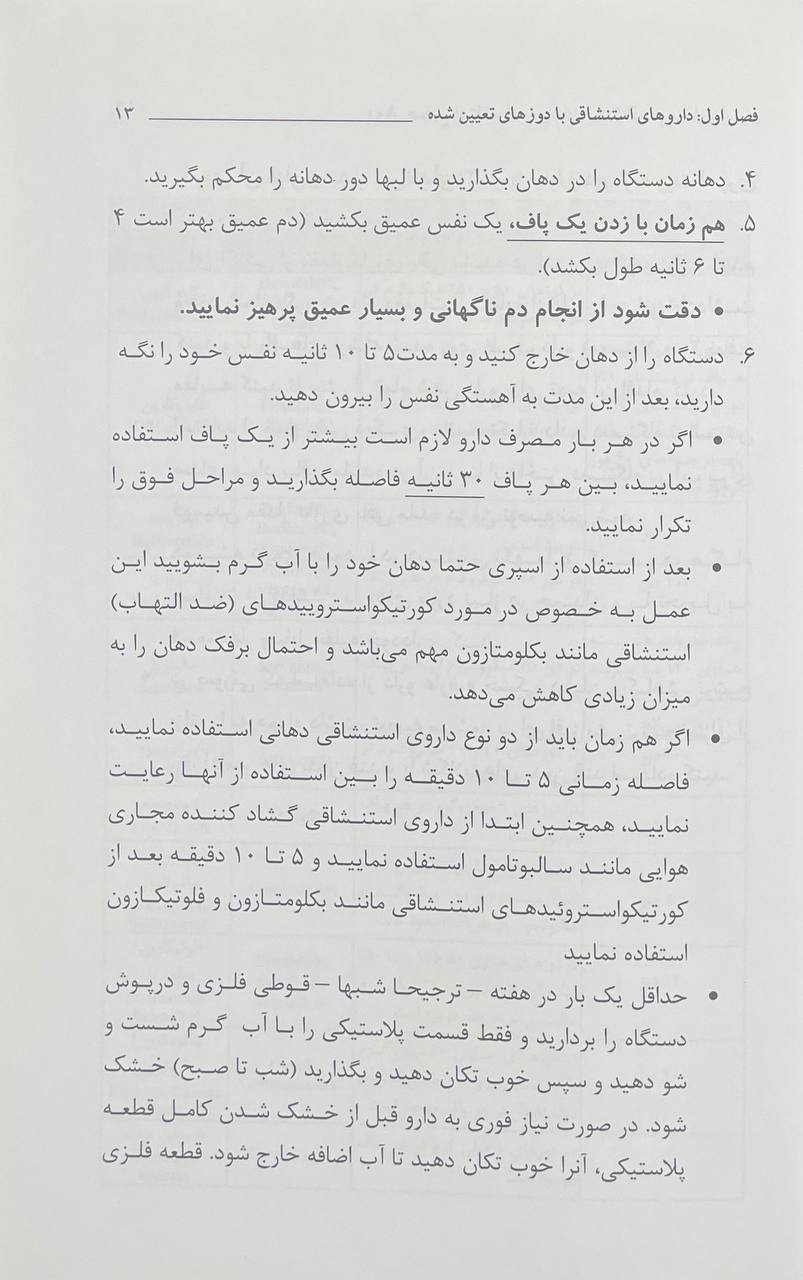 فصل اول: داروهای استنشاقی با دوزهای تعیین شده ۱۳
۴. دهانه دستگاه را در دهان بگذارید و با لبها دور دهانه را محکم بگیرید.
۵. هم زمان با زدن یک پاف، یک نفس عمیق بکشید (دم عمیق بهتر است ۴
تا ۶ ثانیه طول بکشد).
• دقت شود از انجام دم ناگهانی و بسیار عمیق پرهیز نمایید.
۶. دستگاه را از دهان خارج کنید و به مدت۵ تا ۱۰ ثانیه نفس خود را نگه
دارید، بعد از این مدت به آهستگی نفس را بیرون دهید.
• اگر در هر بار مصرف دارو لازم است بیشتر از یک پاف استفاده
نمایید، بین هر پاف ۳۰ ثانیه فاصله بگذارید و مراحل فوق را
تکرار نمایید.
• بعد از استفاده از اسپری حتما دهان خود را با آب گرم بشویید این
عمل به خصوص در مورد کورتیکواستروییدهای (ضد التهاب)
استنشاقی مانند بکلومتازون مهم می‌باشد و احتمال برفک دهان را به
میزان زیادی کاهش می‌دهد.
• اگر هم زمان باید از دو نوع داروی استنشاقی دهانی استفاده نمایید،
فاصله زمانی ۵ تا ۱۰ دقیقه را بین استفاده از آنها رعایت
نمایید، همچنین ابتدا از داروی استنشاقی گشاد کننده مجاری
هوایی مانند سالبوتامول استفاده نمایید و ۵ تا ۱۰ دقیقه بعد از
کورتیکواستروئیدهای استنشاقی مانند بکلومتازون و فلوتیکازون
استفاده نمایید
• حداقل یک بار در هفته – ترجیحا شبها – قوطی فلزی و درپوش
دستگاه را بردارید و فقط قسمت پلاستیکی را با آب گرم شست و
شو دهید و سپس خوب تکان دهید و بگذارید (شب تا صبح) خشک
شود. در صورت نیاز فوری به دارو قبل از خشک شدن کامل قطعه
پلاستیکی، آنرا خوب تکان دهید تا آب اضافه خارج شود. قطعه فلزی